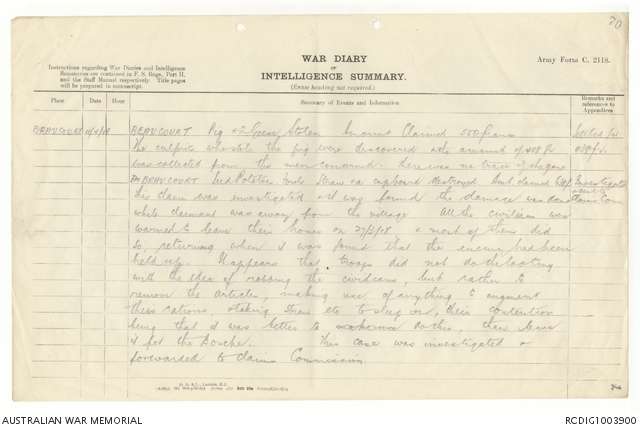 70
WAR DIARY
OR
INTELLIGENCE SUMMARY.
(Erase heading not required.)
Army Form C. 2118.
Instructions regarding War Diaries and Intelligence
Summaries are contained in F. S. Regs., Part II.
and the Staff Manual respectively. Title pages
will be prepared in manuscript.
Place Date Hour Summary of Events and Information Remarks and
references to
Appendices
BEAUCOURT BEAUCOURT Pig & 2 Geese Stolen Amount Claimed 550 francs Settled for
the culprits who stole the pig were discovered and amount of 408 Fr
was collected from the men concerned. There was no trace of
BEAUCOURT Bed Potatoes Straw cupboard destroyed Amt claimed Investigated
This claim was investigated and was found the damage was done Claims Com
while claimant was away from the village All the civilians were
warned to leave their homes on 27/3/18, & most of them did
so, returning when it was found that the enemy had been
held up. It appears that troops did not do the looting
with the idea of robbing the civilians, but rather to
remove the articles, making use of anything to augment
their rations, & taking straw etc to sleep on, their contention
being that it was better to do this, than leave
it for the Bosche. This case was investigated &
forwarded to Claims Commission
AUSTRALIAN WAR MEMORIAL
RCDIG1003900